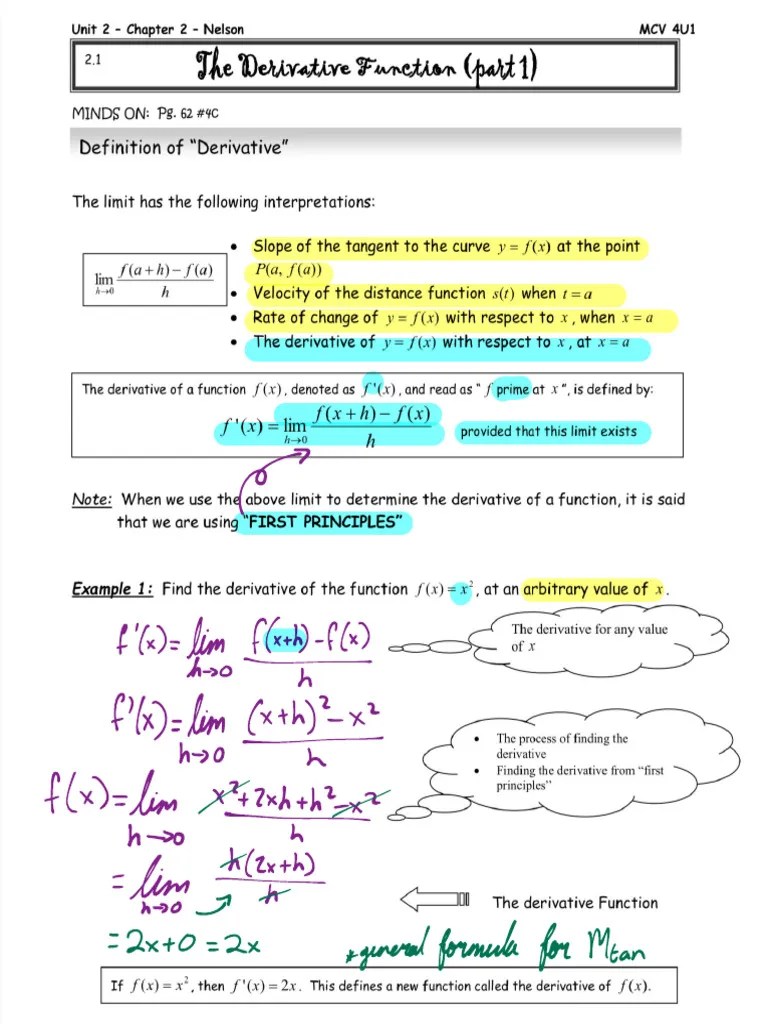 Unit 2 – Chapter 2 – Nelson MCV 4U1
2.1 The Derivative Function (part 1)
MINDS ON: Pg. 62 #4C
Definition of “Derivative”
The limit has the following interpretations:
lim h→0 f(a + h) − f(a) / h
• Slope of the tangent to the curve y = f(x) at the point
P(a, f(a))
• Velocity of the distance function s(t) when t = a
• Rate of change of y = f(x) with respect to x, when x = a
• The derivative of y = f(x) with respect to x, at x = a
The derivative of a function f(x), denoted as f'(x), and read as “ f prime at x”, is defined by:
f'(x) = lim h→0 f(x + h) − f(x) / h provided that this limit exists
Note: When we use the above limit to determine the derivative of a function, it is said
that we are using “FIRST PRINCIPLES”
Example 1: Find the derivative of the function f(x) = x², at an arbitrary value of x.
f'(x) = lim h→0 f(x+h) − f(x) / h
The derivative for any value
of x
f'(x) = lim h→0 (x+h)² − x² / h
• The process of finding the
derivative
• Finding the derivative from “first
principles”
f(x) = lim h→0 x² + 2xh + h² − x² / h
= lim h→0 h(2x+h) / h
The derivative Function
= 2x+0 = 2x *general formula for Mtan
If f(x) = x², then f'(x) = 2x. This defines a new function called the derivative of f(x).